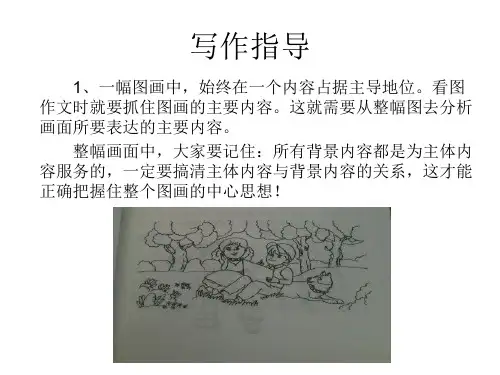 写作指导
1、一幅图画中，始终在一个内容占据主导地位。看图
作文时就要抓住图画的主要内容。这就需要从整幅图去分析
画面所要表达的主要内容。
整幅画面中，大家要记住：所有背景内容都是为主体内
容服务的，一定要搞清主体内容与背景内容的关系，这才能
正确把握住整个图画的中心思想！